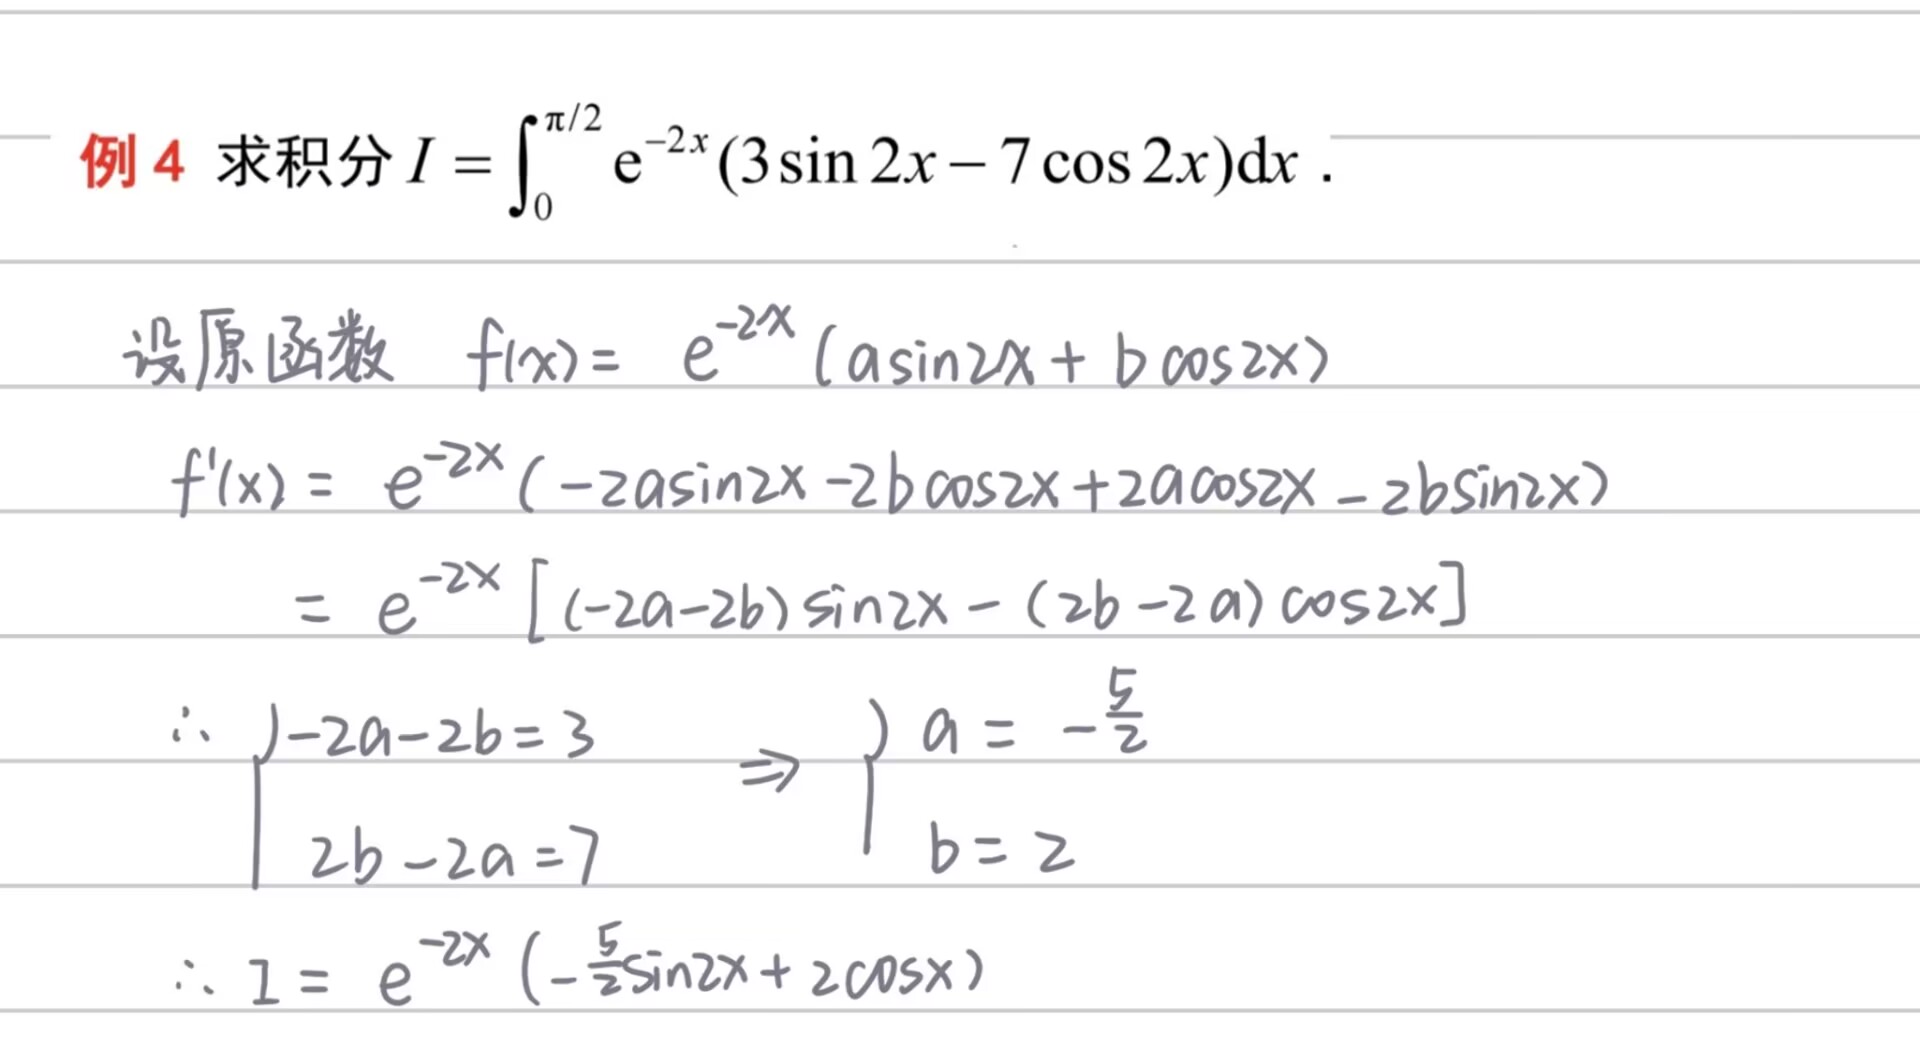 例 4 求积分 I = ∫₀^{π/2} e^{-2x}(3sin 2x − 7cos 2x)dx .
设原函数 f(x) = e^{-2x}(asin2x + bcos2x)
f'(x) = e^{-2x}(-2asin2x -2bcos2x + 2acos2x - 2bsin2x)
= e^{-2x}[(-2a-2b)sin2x - (2b-2a)cos2x]
∴ { -2a-2b=3 ⇒ { a = -5/2
2b-2a=7 b=2
∴ I = e^{-2x}(-5/2 sin2x + 2cosx)